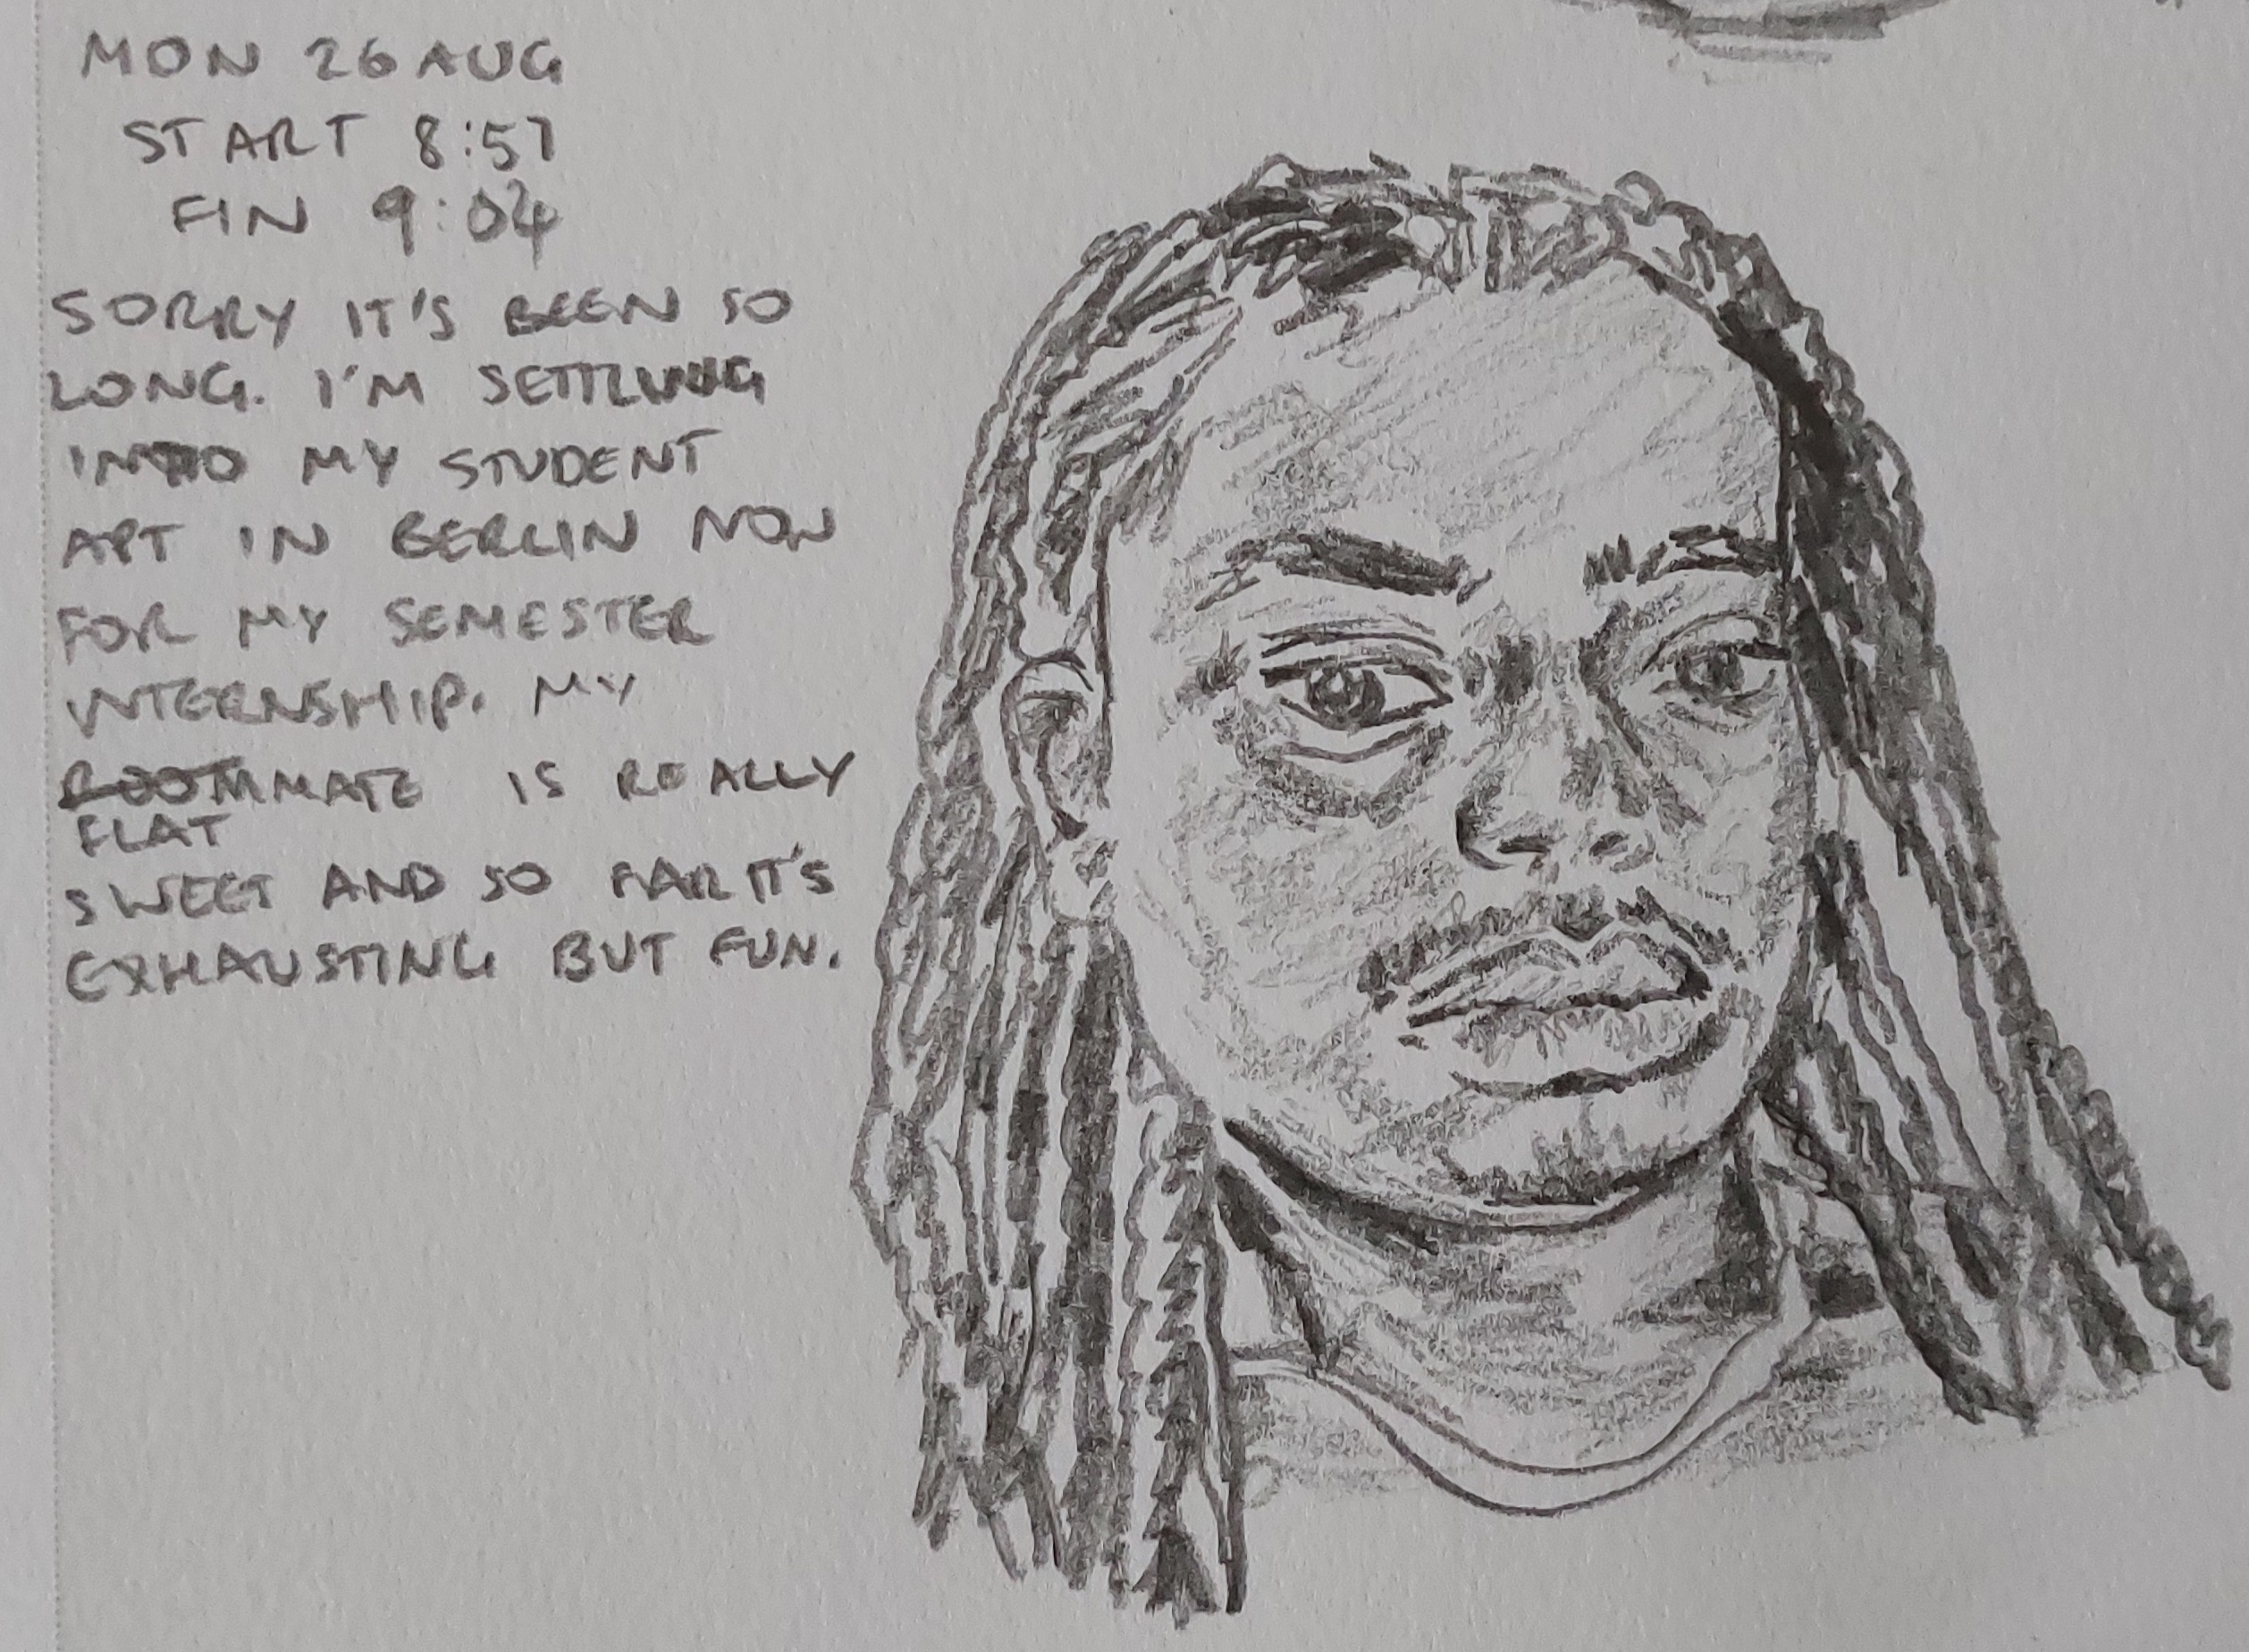 MON 26 AUG
START 8:57
FIN 9:04
SORRY IT'S BEEN SO
LONG. I'M SETTLING
INTO MY STUDENT
APT IN BERLIN NOW
FOR MY SEMESTER
INTERNSHIP. MY
ROOMMATE IS REALLY
FLAT
SWEET AND SO FAR IT'S
EXHAUSTING BUT FUN.